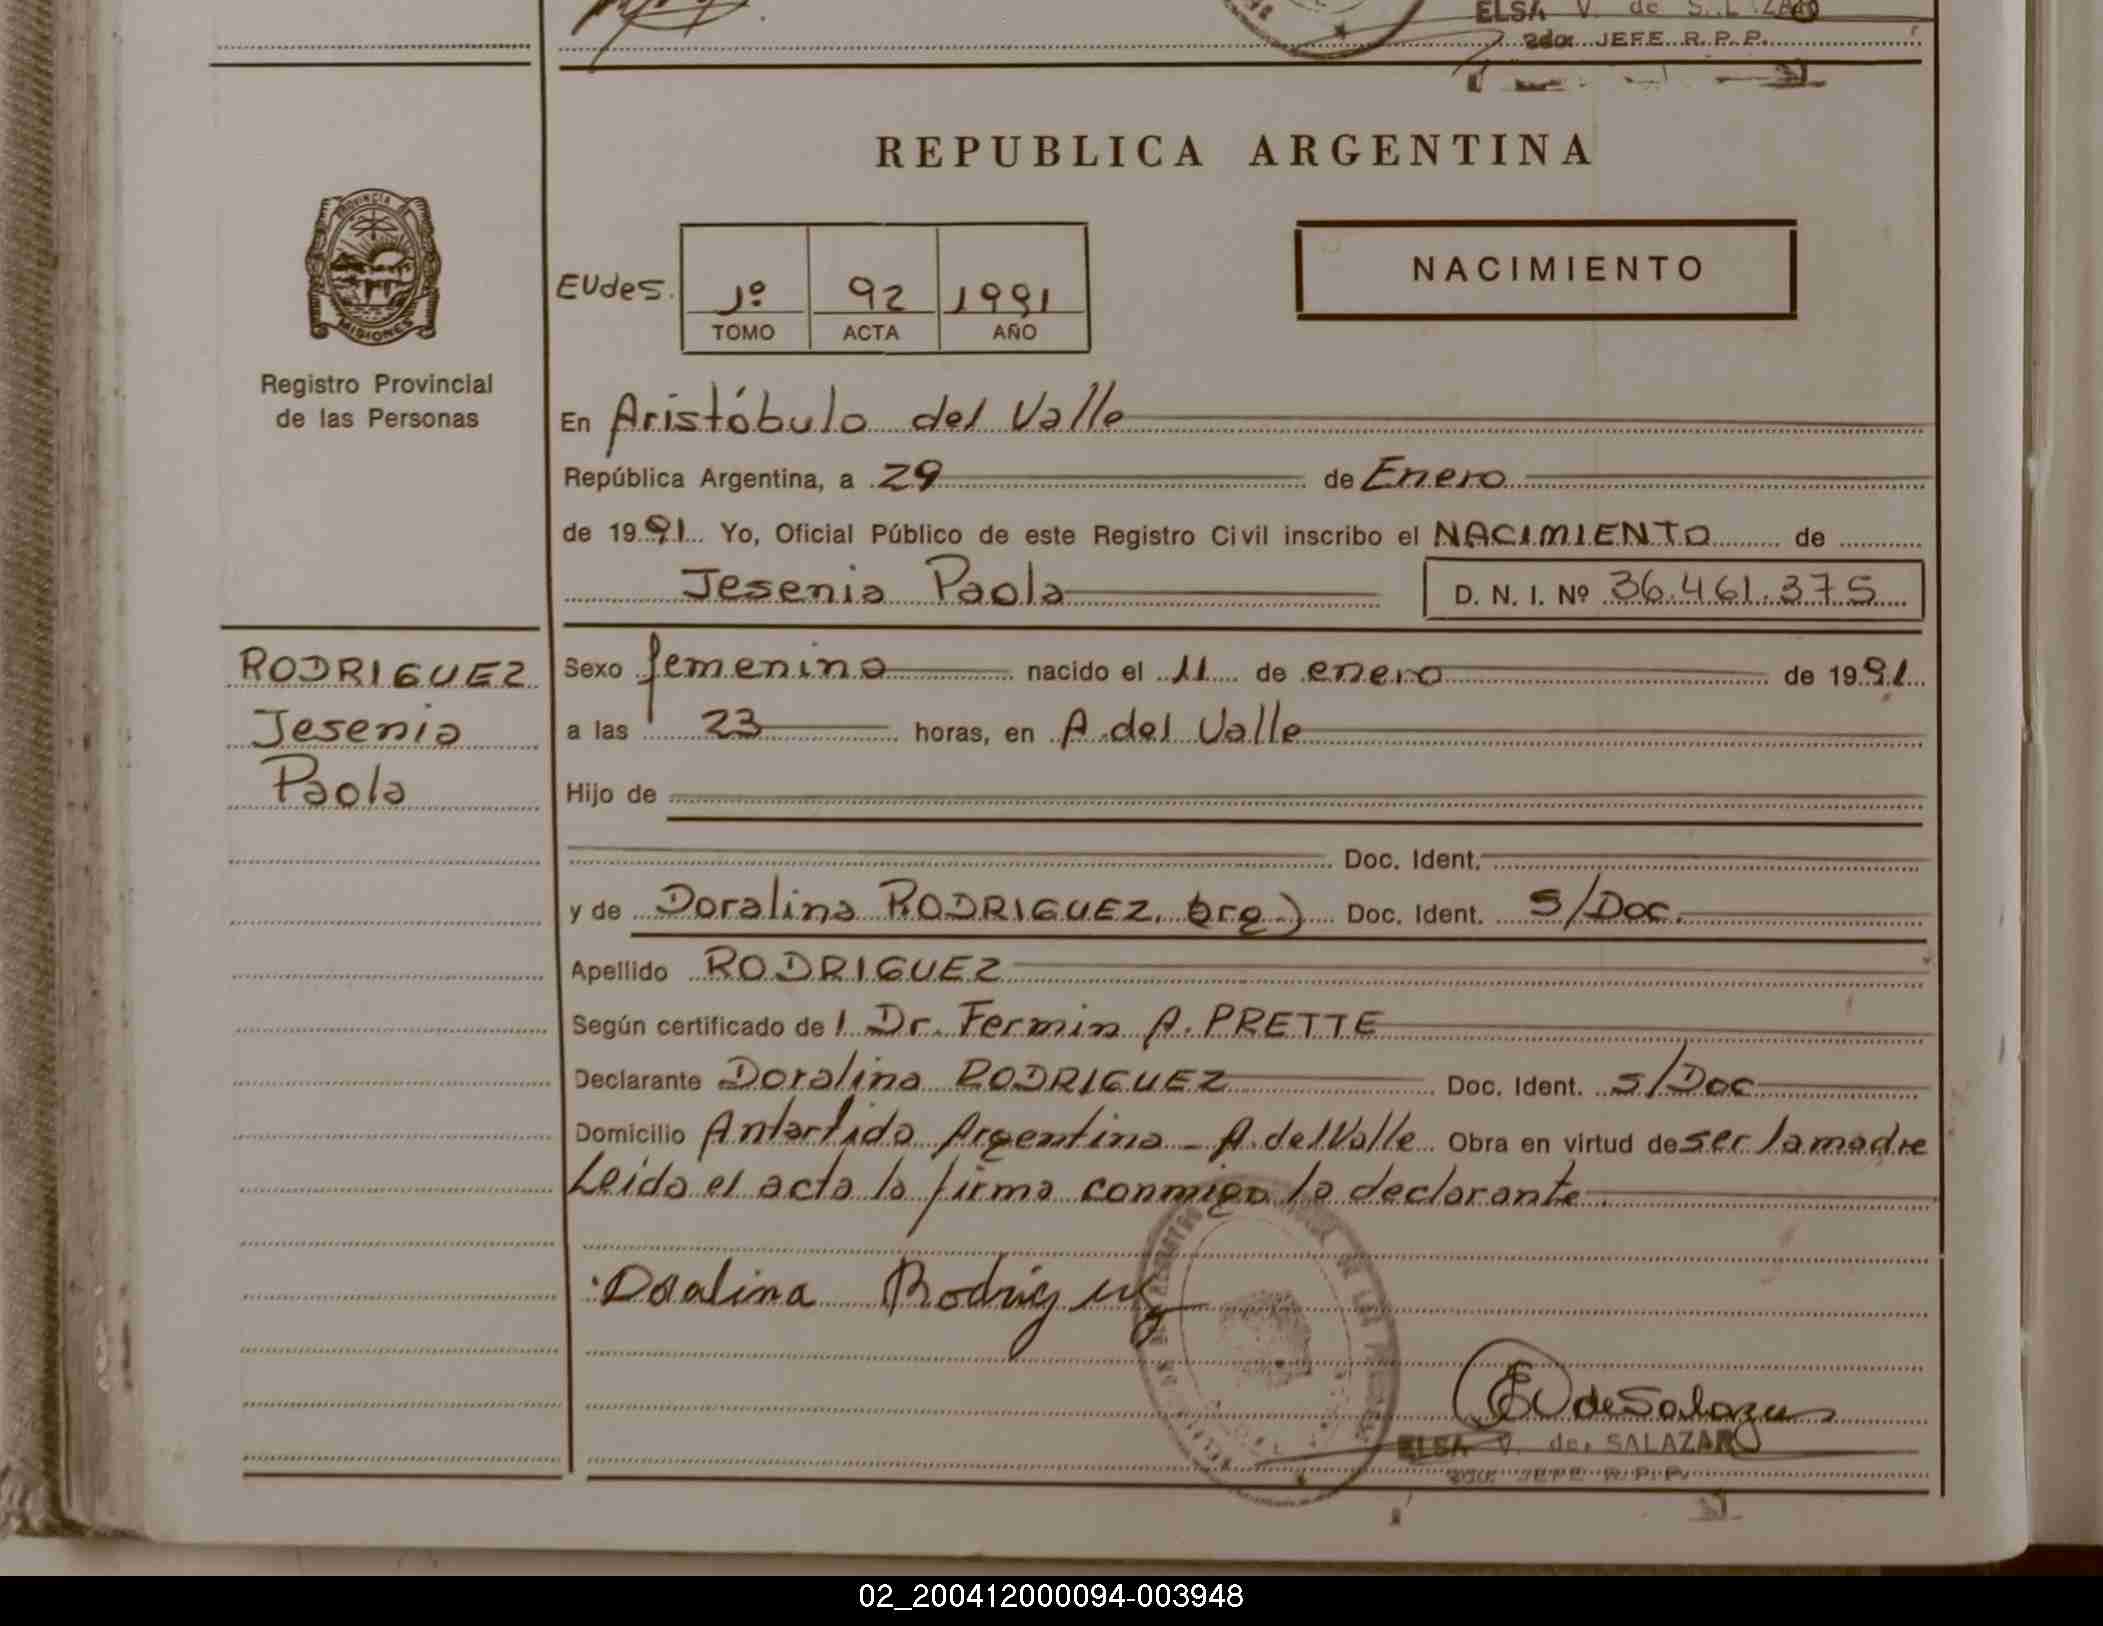 ELSA V. de SALAZAR
2da. JEFE R. P. P.
REPUBLICA ARGENTINA
PROVINCIA DE
MISIONES
Registro Provincial
de las Personas
NACIMIENTO
EUdeS. 1º 92 1991
TOMO ACTA AÑO
En Aristóbulo del Valle
República Argentina, a 29 de Enero
de 1991 Yo, Oficial Público de este Registro Civil inscribo el NACIMIENTO de
Jesenia Paola D. N. I. Nº 36.461.375
RODRIGUEZ
Jesenia
Paola
Sexo femenino nacido el 11 de enero de 1991
a las 23 horas, en A. del Valle
Hijo de
Doc. Ident.
y de Doralina RODRIGUEZ. (arg.) Doc. Ident. S/Doc.
Apellido RODRIGUEZ
Según certificado de l Dr. Fermin A. PRETTE
Declarante Doralina RODRIGUEZ Doc. Ident. s/Doc
Domicilio Antartida Argentina - A. del Valle Obra en virtud de ser la madre
Leida el acta la firma conmigo la declarante.
Doralina Rodriguez
EV de Salazar
ELSA V. de. SALAZAR
2da. JEFE R. P. P.
02_200412000094-003948